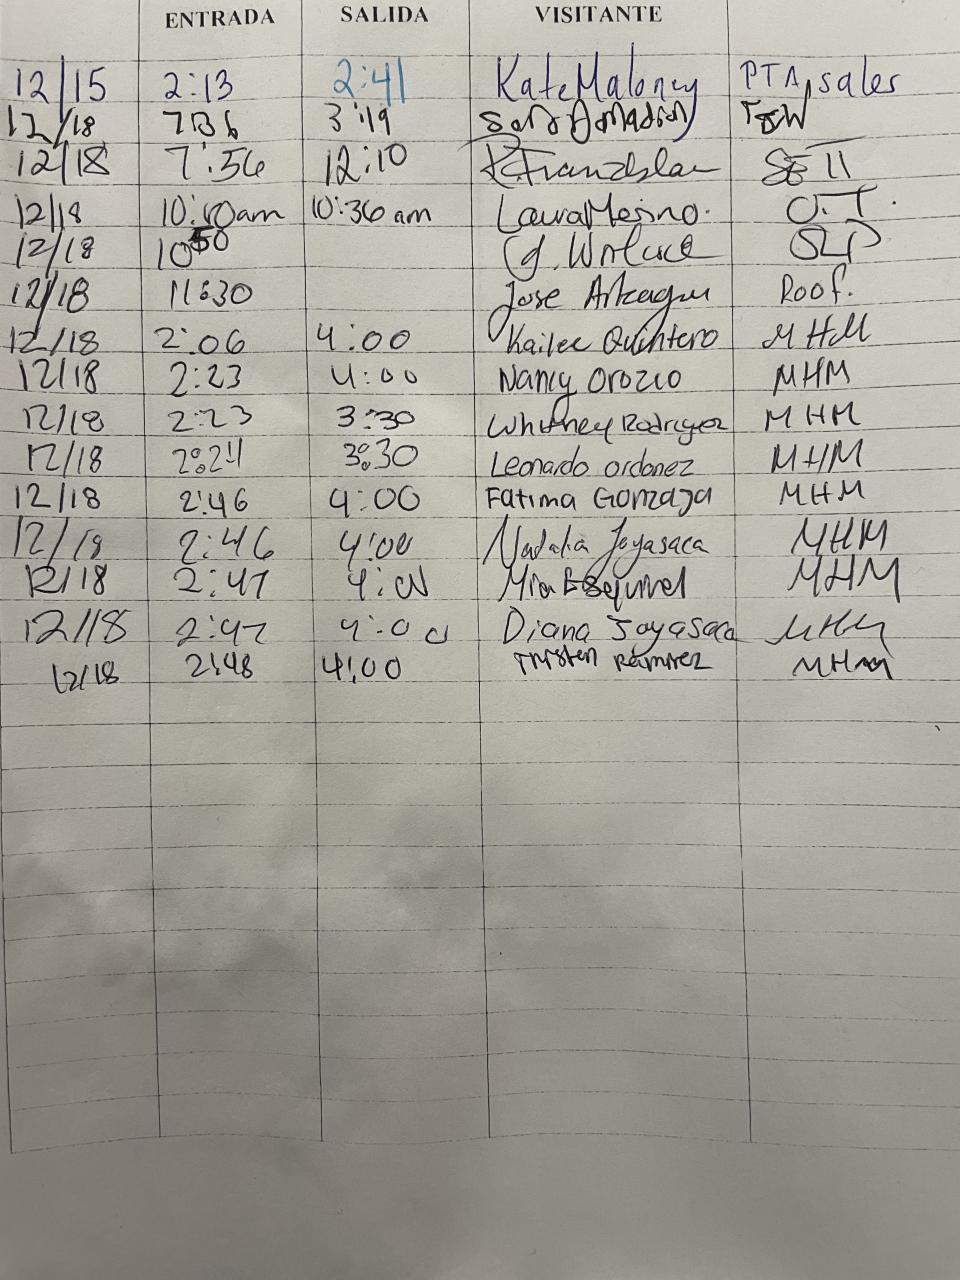 ENTRADA SALIDA VISITANTE
12/15 2:13 2:41 Kate Maloney PTA, sales
12/18 3:19
12/18 7:56 12:10
12/18 10:10am 10:36 am Laura Merino. O.T.
12/18 10:50 SLP
12/18 11:30 Jose Roof.
12/18 2:06 4:00 Kailee Quintero MHM
12/18 2:23 4:00 Nancy Orozco MHM
12/18 2:23 3:30 Whitney Rodriguez MHM
12/18 2:24 3:30 Leonardo ordonez MHM
12/18 2:46 4:00 Fatima Gonzaga MHM
12/18 2:46 4:00 Natalia Joyasaca MHM
12/18 2:47 4:00 Mia Esquivel MHM
12/18 2:47 4:00 Diana Joyasaca MHM
12/18 2:48 4:00 Tristen Ramirez MHM